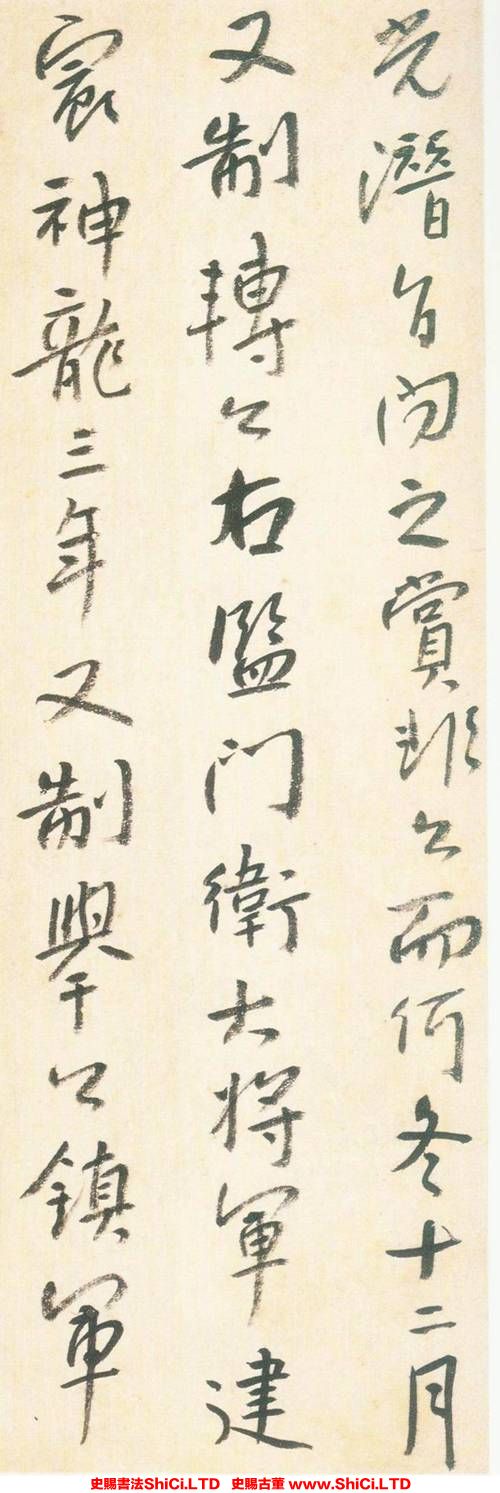 光潛旨閉之賞非公而何冬十二月
又制轉公右監門衛大將軍建
宸神龍三年又制舉公鎮軍
史賜書法ShiCi.LTD 史賜古董 www.ShiCi.LTD